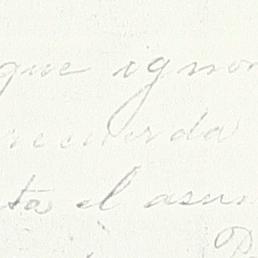 que ignor
recuerda
ta el asun